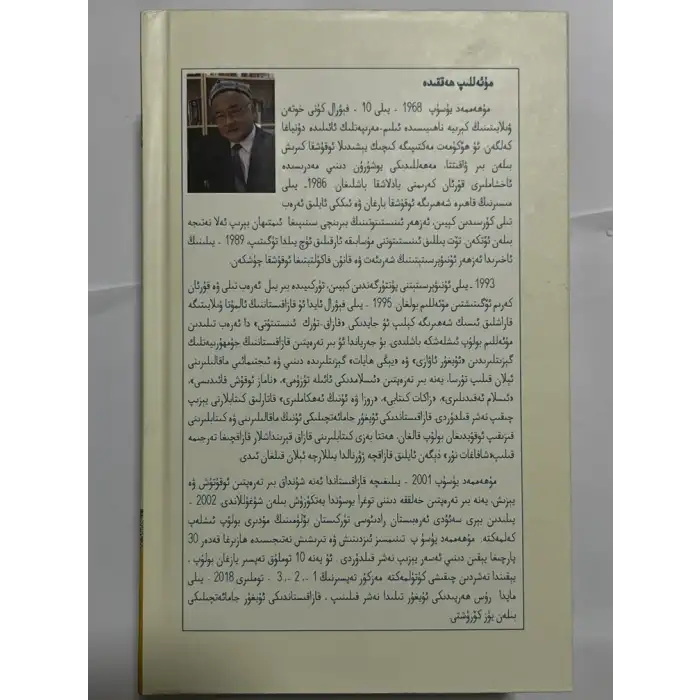 مۇئەللىپ ھەققىدە
مۇھەممەد يۈسۈپ 1968 - يىلى 10 - فېۋرال كۈنى خوتەن
ۋىلايىتىنىڭ كېرىيە ناھىيىسىدە ئىلىم-مەرىپەتلىك ئائىلىدە دۇنياغا
كەلگەن. ئۇ ھۆكۈمەت مەكتىپىگە كىچىك يېشىدىلا ئوقۇشقا كىرىش
بىلەن بىر ۋاقىتتا، مەھەللىدىكى يوشۇرۇن دىنىي مەدرىسىدە
ئاخشاملىرى قۇرئان كەرىمنى يادلاشقا باشلىغان. 1986- يىلى
مىسىرنىڭ قاھىرە شەھىرىگە ئوقۇشقا بارغان ۋە ئىككى ئايلىق ئەرەب
تىلى كۇرسىدىن كېيىن، ئەزھەر ئىنستىتوتىنىڭ بىرىنچى سىنىپىغا ئىمتىھان بېرىپ ئەلا نەتىجە
بىلەن ئۆتكەن. تۆت يىللىق ئىنستىتوتنى مۇسابىقە ئارقىلىق ئۈچ يىلدا تۈگىتىپ، 1989 - يىلىنىڭ
ئاخىرىدا ئەزھەر ئۇنىۋېرسىتېتىنىڭ شەرىئەت ۋە قانۇن فاكۇلتېتىغا ئوقۇشقا چۈشكەن.
1993 -يىلى ئۇنىۋېرسىتېتنى پۈتتۈرگەندىن كېيىن، تۈركىيىدە بىر يىل ئەرەب تىلى ۋە قۇرئان
كەرىم ئۆگىتىشتىن مۇئەللىم بولغان. 1995 - يىلى فېۋرال ئايدا ئۇ قازاقىستاننىڭ ئالمۇتا ۋىلايىتىگە
قاراشلىق ئىسىك شەھىرىگە كېلىپ ئۇ جايدىكى «قازاق-تۈرك ئىنستىتۇتى» دا ئەرەب تىلىدىن
مۇئەللىم بولۇپ ئىشلەشكە باشلىدى. بۇ جەرياندا ئۇ بىر تەرەپتىن قازاقىستاننىڭ جۇمھۇرىيەتلىك
گېزىتلىرىدىن «ئۇيغۇر ئاۋازى» ۋە «يېڭى ھايات» گېزىتلىرىدە دىنىي ۋە ئىجتىمائىي ماقالىلىرىنى
ئېلان قىلىپ تۇرسا، يەنە بىر تەرەپتىن «ئىسلامدىكى ئائىلە تۈزۈمى»، «ناماز ئوقۇش قائىدىسى»،
«ئىسلام ئەقىدىلىرى»، «زاكات كىتابى»، «روزا ۋە ئۇنىڭ ئەھكاملىرى» قاتارلىق كىتابلارنى يېزىپ
چىقىپ نەشر قىلدۇردى. قازاقىستاندىكى ئۇيغۇر جامائەتچىلىكى ئۇنىڭ ماقالىلىرىنى ۋە كىتابلىرىنى
قىزىقىپ ئوقۇيدىغان بولۇپ قالغان. ھەتتا بەزى كىتابلىرىنى قازاق قېرىنداشلار قازاقچىغا تەرجىمە
قىلىپ«شافاغات نۇر» دېگەن ئايلىق قازاقچە ژۇرنالدا يىللارچە ئېلان قىلغان ئىدى.
مۇھەممەد يۈسۈپ 2001 - يىلىغىچە قازاقىستاندا ئەنە شۇنداق بىر تەرەپتىن ئوقۇتۇش ۋە
يېزىش، يەنە بىر تەرەپتىن خەلققە دىننى توغرا يوسۇندا يەتكۈزۈش بىلەن شۇغۇللاندى. 2002 -
يىلىدىن بېرى سەئۇدى ئەرەبىستان رادىئوسى تۈركىستان بۆلۈمىنىڭ مۇدىرى بولۇپ ئىشلەپ
كەلمەكتە. مۇھەممەد يۈسۈپ تىنىمسىز ئىزدىنىش ۋە تىرىشىش نەتىجىسىدە ھازىرغا قەدەر 30
پارچىغا يېقىن دىنىي ئەسەر يېزىپ نەشر قىلدۇردى. ئۇ يەنە 10 توملۇق تەپسىر يازغان بولۇپ ،
يېقىندا نەشردىن چىقىشى كۈتۈلمەكتە. مەزكۇر تەپسىرنىڭ 1 -، 2 -، 3 - توملىرى 2018 - يىلى
مايدا رۇس ھەرپىدىكى ئۇيغۇر تىلىدا نەشر قىلىنىپ ، قازاقىستاندىكى ئۇيغۇر جامائەتچىلىكى
بىلەن يۈز كۆرۈشتى.